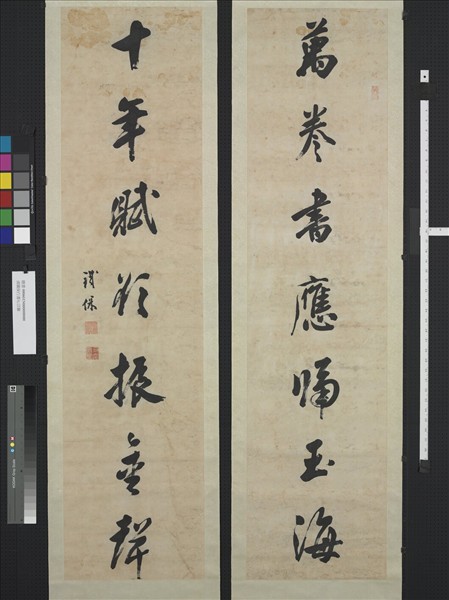 萬卷書應歸玉海
十年賦欲振金聲
鐵保